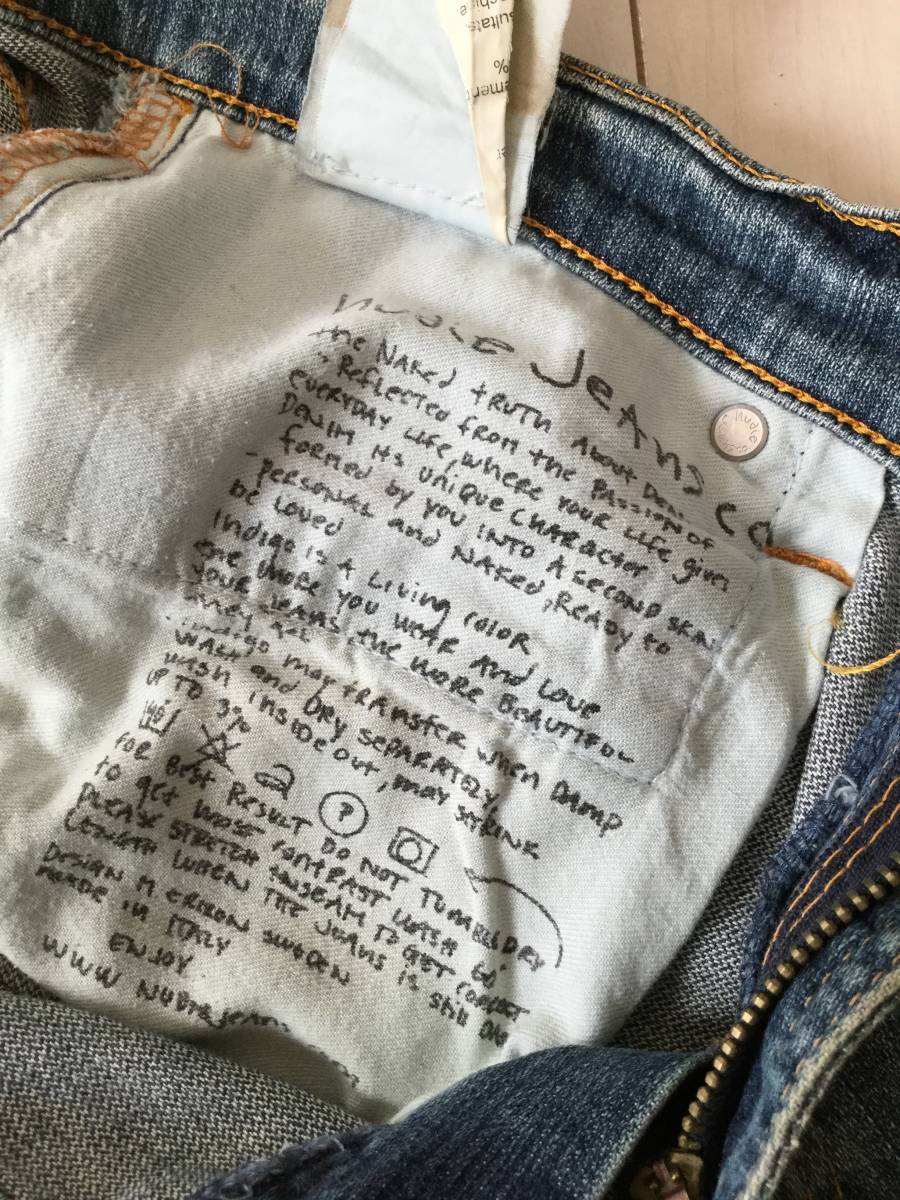 sultats.
%
Nudie Jeans co
the NAKED tRUTH About Denim
- Reflected from the PASSION of
everyday Life, where YOUR Life gives
DENIM its UNIQUE CHARACTER
formed by you INTO A SECOND SKIN
- PERSONAL and NAKED, READY to
be Loved
Indigo is A Living COLOR
the more you WEAR AND LOVE
YOUR JEANS the MORE BEAUTIFUL
they get
Indigo may tRANSFER WHEN DAMP
WASH and DRY SEPARATELY,
WASH INSIDE OUT, MAY SHRINK
UP TO 3%
for Best RESULT DO NOT TUMBLE DRY
to get MORE CONTRAST WASH 60°
PLEASE STRETCH INSEAM TO GET CORRECT
LENGTH WHEN THE JEANS is still
DESIGN M ERIXON SWEDEN
MADE in ITALY
ENJOY
WWW NUDIEJeans
Nudie